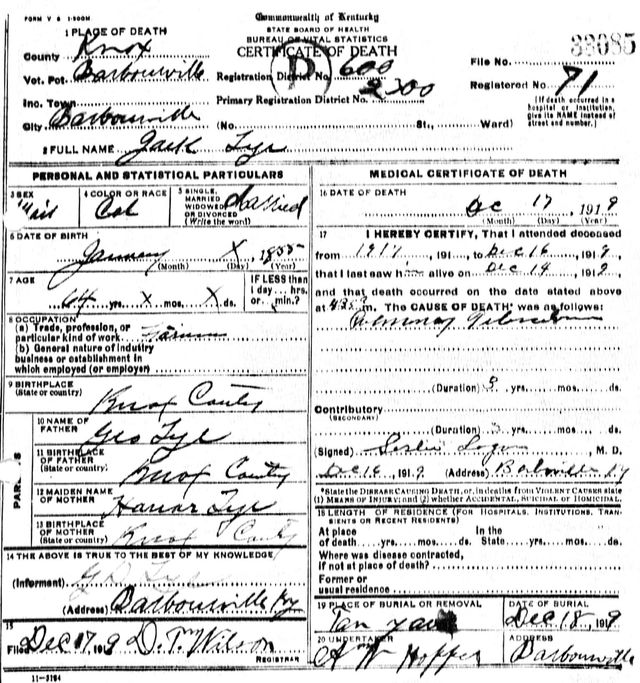 FORM V S 1-500M
Commonwealth of Kentucky
STATE BOARD OF HEALTH
BUREAU OF VITAL STATISTICS
CERTIFICATE OF DEATH
33085
1 PLACE OF DEATH
County Knox
Vot. Pct. Barbourville
Inc. Town
City Barbourville
(P)
Registration District No. 600
Primary Registration District No. 2300
(No. St., Ward)
File No.
Registered No. 71
(If death occurred in a hospital or institution, give its NAME instead of street and number.)
2 FULL NAME Jack Tye
PERSONAL AND STATISTICAL PARTICULARS
3 SEX Male
4 COLOR OR RACE Col
5 SINGLE, MARRIED WIDOWED OR DIVORCED (Write the word) Married
6 DATE OF BIRTH
January X, 1855
(Month) (Day) (Year)
7 AGE
64 yrs. X mos. X ds.
IF LESS than 1 day... hrs. or min.?
8 OCCUPATION
(a) Trade, profession, or particular kind of work
(b) General nature of industry business or establishment in which employed (or employer)
9 BIRTHPLACE
(State or country) Knox County
PARENTS
10 NAME OF FATHER Geo Tye
11 BIRTHPLACE OF FATHER
(State or country) Knox County
12 MAIDEN NAME OF MOTHER Tye
13 BIRTHPLACE OF MOTHER
(State or country) Knox County
14 THE ABOVE IS TRUE TO THE BEST OF MY KNOWLEDGE
(Informant) Tye
(Address) Barbourville Ky
15
Filed Dec 17, 1919 D. T. Wilson
REGISTRAR
11-3184
MEDICAL CERTIFICATE OF DEATH
16 DATE OF DEATH
Dec 17, 1919
(Month) (Day) (Year)
17 I HEREBY CERTIFY, That I attended deceased
from 1917, 191, to Dec 16 1919,
that I last saw him alive on Dec 14 1919,
and that death occurred on the date stated above
at m. The CAUSE OF DEATH* was as follows:
Pulmonary Tuberculosis
(Duration) 3 yrs. mos. ds.
Contributory
(SECONDARY)
(Duration) 3 yrs. mos. ds.
(Signed) Leslie Logan, M. D.
Dec 16, 1919 (Address) Ky
*State the DISEASE CAUSING DEATH, or, in deaths from VIOLENT CAUSES state (1) MEANS OF INJURY; and (2) whether ACCIDENTAL, SUICIDAL or HOMICIDAL.
18 LENGTH OF RESIDENCE (FOR HOSPITALS, INSTITUTIONS, TRANSIENTS OR RECENT RESIDENTS)
At place of death yrs. mos. ds. In the State yrs. mos. ds.
Where was disease contracted,
if not at place of death?
Former or
usual residence
19 PLACE OF BURIAL OR REMOVAL
Tan yard
DATE OF BURIAL
Dec 18, 1919
20 UNDERTAKER
A W Hopper
ADDRESS
Barbourville